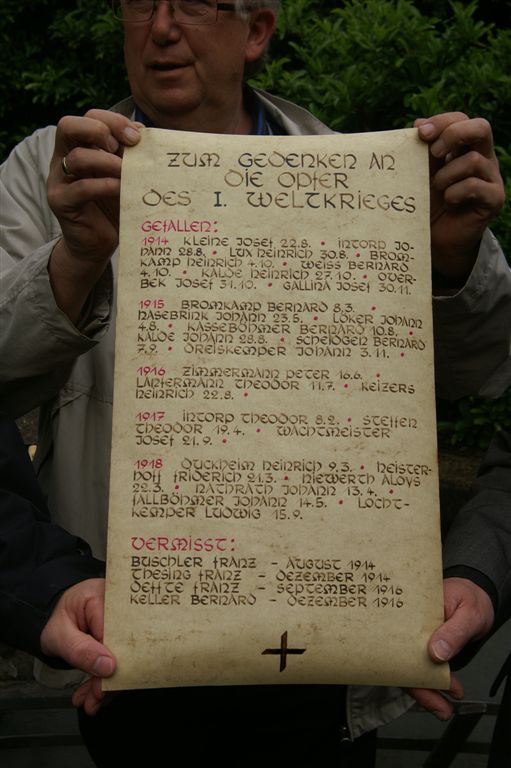 ZUM GEDENKEN AN
DIE OPFER
DES I. WELTKRIEGES
GEFALLEN:
1914 KLEINE JOSEF 22.8. • INTORP JO-
HANN 28.8. • LUX HEINRICH 30.8. • BROM-
KAMP HEINRICH 4.10. • WEISS BERNARD
4.10. • KALDE HEINRICH 27.10. • OVER-
BEK JOSEF 31.10. • GALLINA JOSEF 30.11.
1915 BROMKAMP BERNARD 8.3. •
HASEBRINK JOHANN 23.5. • LÖKER JOHANN
4.8. • KASSEBÖHMER BERNARD 10.8. •
KALDE JOHANN 28.8. • SCHEIDGEN BERNARD
7.9. • DREISKEMPER JOHANN 3.11. •
1916 ZIMMERMANN PETER 16.6. •
LANFERMANN THEODOR 11.7. • KEIZERS
HEINRICH 22.8. •
1917 INTORP THEODOR 8.2. • STEFFEN
THEODOR 19.4. • WACHTMEISTER
JOSEF 21.9. •
1918 DUCKHEIM HEINRICH 9.3. • HEISTER-
HOFF FRIDERICH 21.3. • NIEWERTH ALOYS
22.3. • NATHRATH JOHANN 13.4. •
FALLBÖHMER JOHANN 14.5. • LOCHT-
KEMPER LUDWIG 15.9.
VERMISST:
BUSCHLER FRANZ - AUGUST 1914
THESING FRANZ - DEZEMBER 1914
DEFTE FRANZ - SEPTEMBER 1916
KELLER BERNARD - DEZEMBER 1916